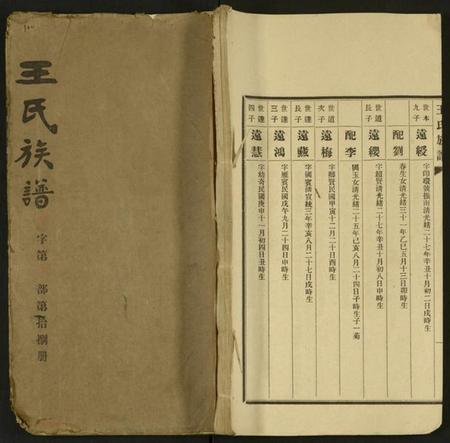 王氏族譜
字第 部第拾捌册
王氏族譜
世本
九子
遠綬
字印環號振南清光緒二十七年辛丑十月初二日戌時生
配劉
春生女清光緒三十一年乙巳五月十三日卯時生
世道
長子
遠纓
字超賢清光緒二十七年辛丑十月初八日申時生
配李
國玉女清光緒二十五年己亥八月二十四日子時生子一菊
世道
次子
遠梅
字鄰賢民國甲寅十二月二十日酉時生
世達
長子
遠燕
字國賓清宣統三年辛亥八月二十七日戌時生
世達
三子
遠鴻
字雁賓民國戊午九月二十四日申時生
世達
四子
遠慧
字幼奇民國庚申十一月初四日丑時生